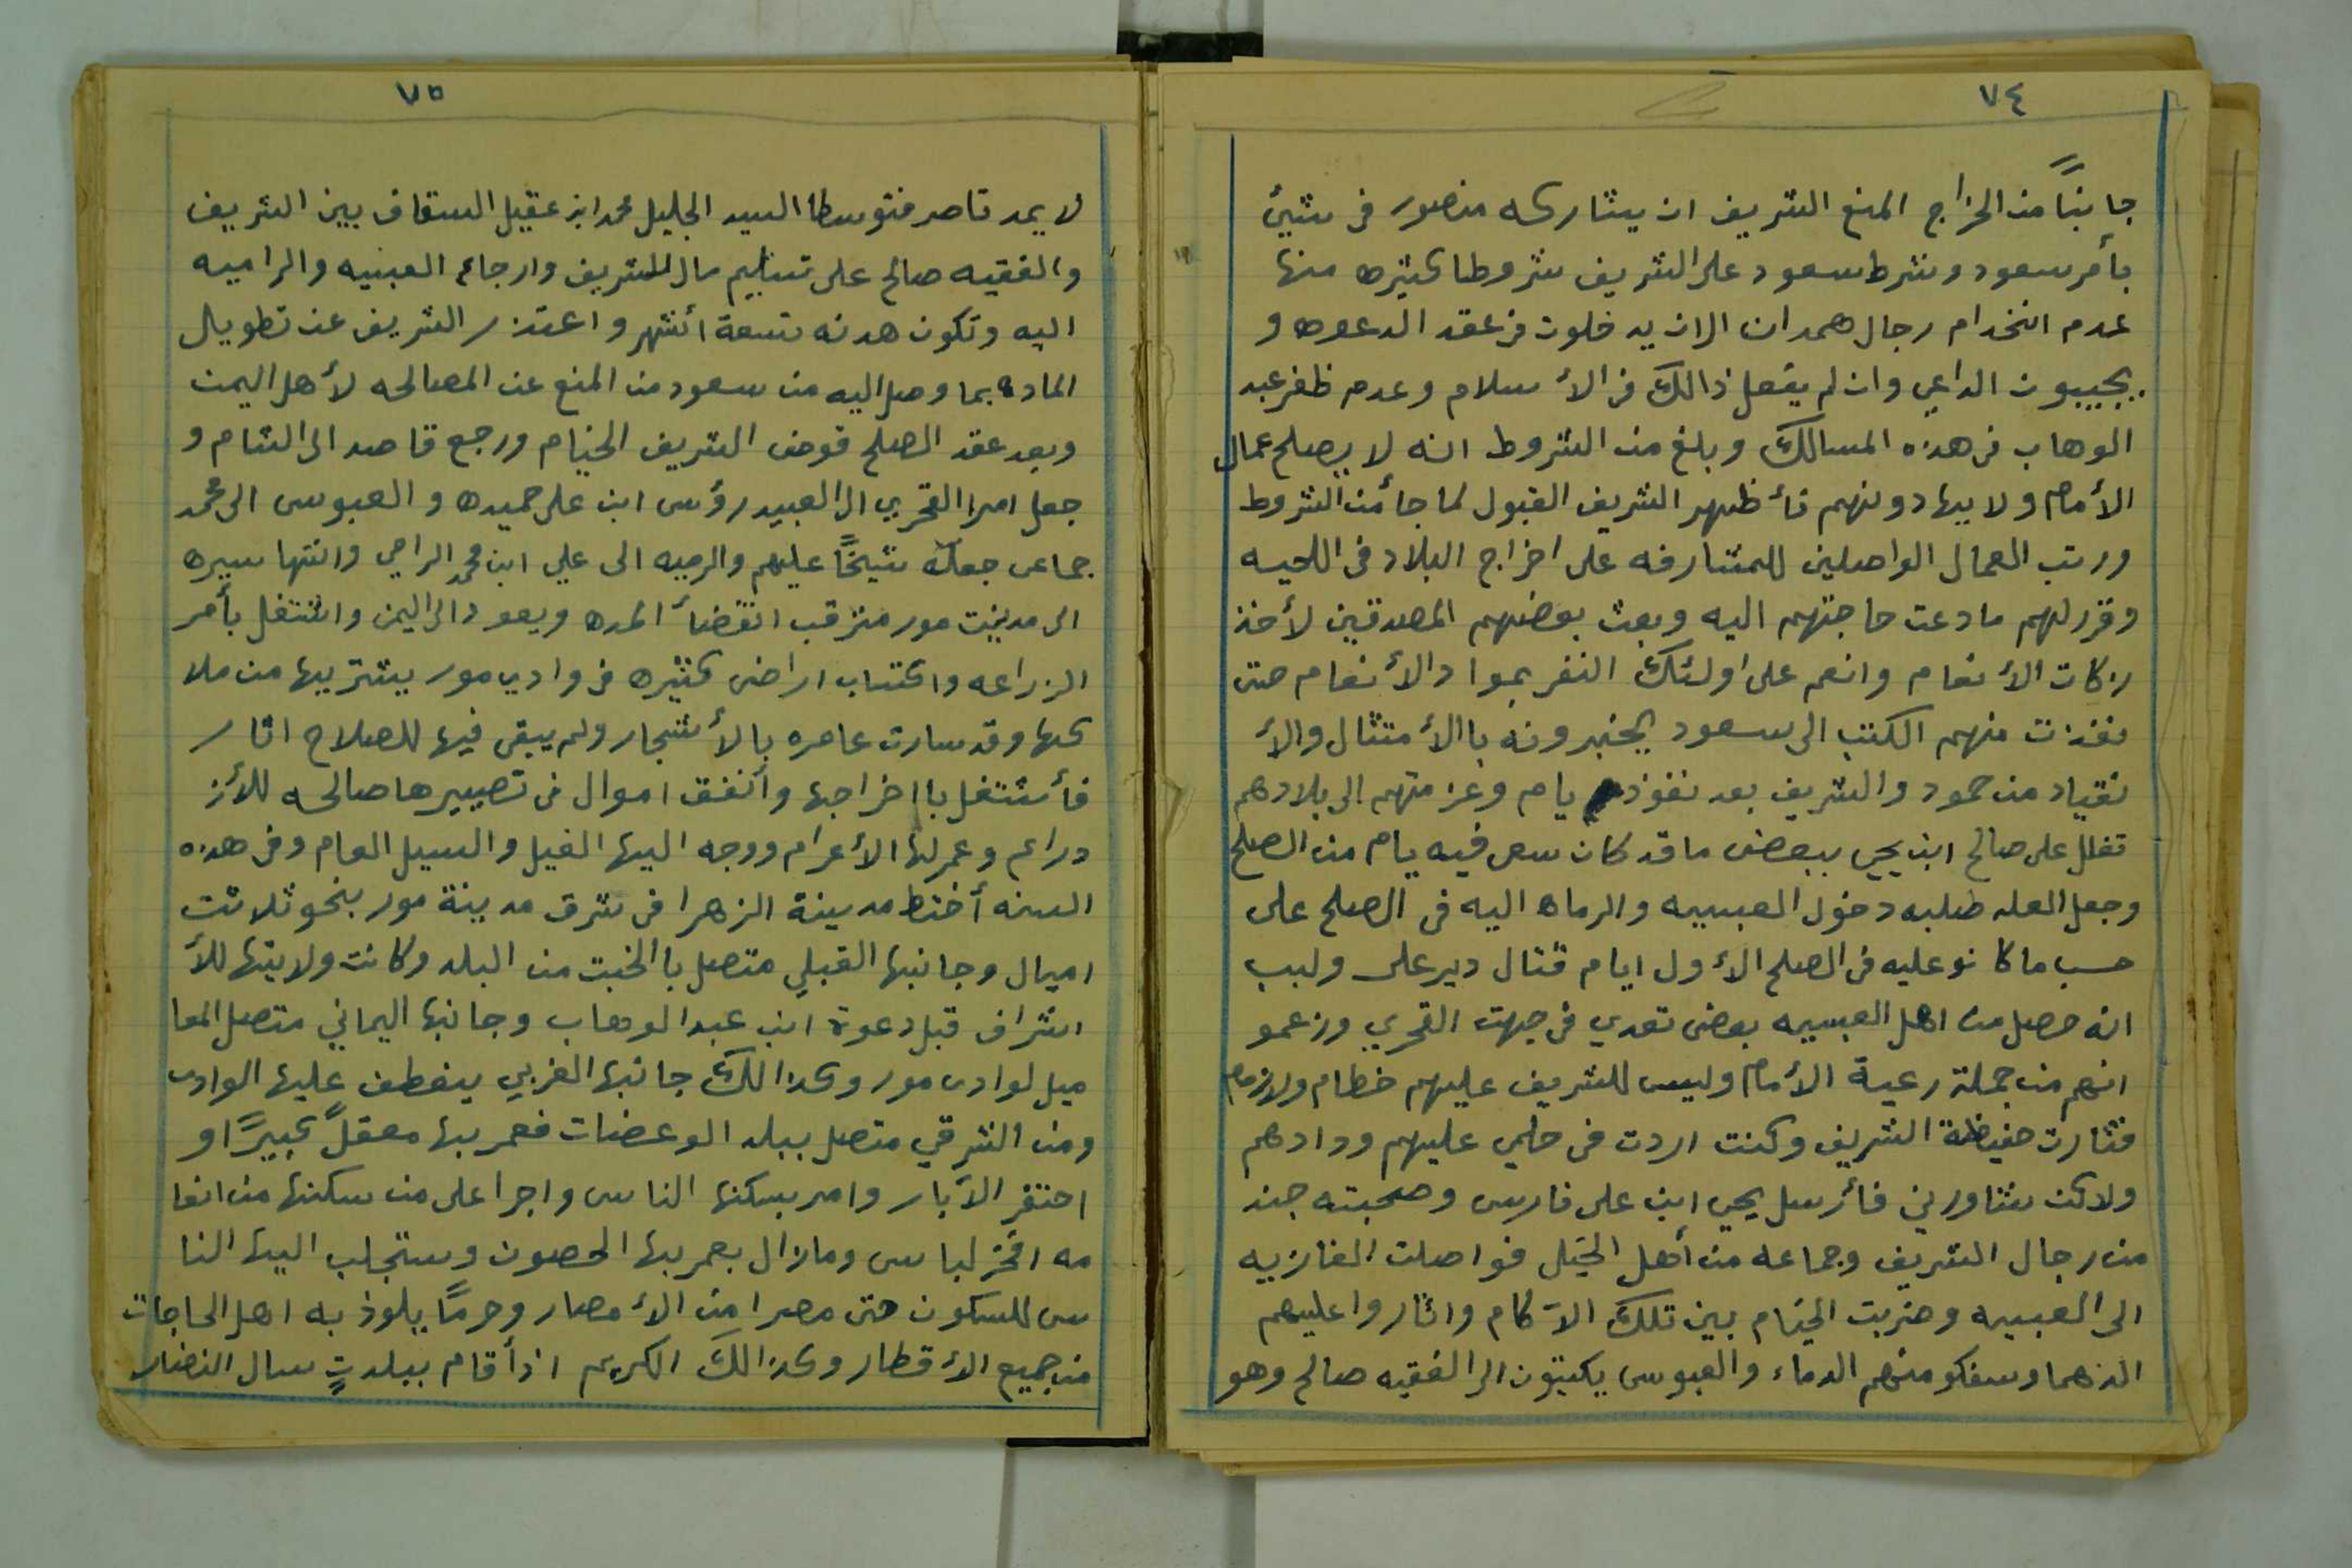 ٧٤
جانبًا من الخراج المنع الشريف ان يشاركه منصور في شيئ
بأمر سعود وشرط سعود على الشريف شروطا كثيره منها
عدم اتخدام رجال همدان الا ان يدخلون في عقد الدعوه و
يجيبون الداعي وان لم يفعل ذالك في الأسلام وعدم ظفر عبد
الوهاب في هذه المسالك وبلغ من الشروط انه لا يصلح عمال
الأمام ولا يهادونهم فأظهر الشريف القبول لما جأ من الشروط
ورتب العمال الواصلين للمشارفه على اخراج البلاد في اللحيه
وقرر لهم ما دعت حاجتهم اليه وبعث بعضهم المصدقين لأخذ
زكات الأنعام وانعم على اولئك النفر بمواد الأنعام حتى
نفذت منهم الكتب الى سعود يخبرونه باالأمتثال والأ
نقياد من حمود والشريف بعد نفوذ يام وعزمتهم الى بلادهم
تغلل على صالح ابن يحي ببعض ما قد كان سعى فيه يام من الصلح
وجعل العله طلبه دخول العبسيه والرماه اليه في الصلح على
حسب ما كانو عليه في الصلح الأول ايام قتال دير على ولبب
انه حصل من اهل العبسيه بعض تعدي في جهت القحري وزعمو
انهم من جملة رعية الأمام وليس للشريف عليهم خطام ولا زمام
فثارت حفيظة الشريف وكنت اردت في حلمي عليهم وودادهم
ولاكن شاورني فأرسل يحي ابن على فارس وصحبته جند
من رجال الشريف وجماعه من أهل الخيل فواصلت الغازيه
الى العبسيه وضربت الخيام بين تلك الآكام واثاروا عليهم
الدهما وسفكو منهم الدماء والعبوس يكتبون الى الفقيه صالح وهو
٧٥
لا يمد ناصر فتوسطا السيد الجليل محمد ابن عقيل السقاف بين الشريف
والفقيه صالح على تسليم مال للشريف وارجاع العبسيه والراميه
اليه وتكون هدنه تسعة أشهر واعتذر الشريف عن تطويل
الماده بما وصل اليه من سعود من المنع عن المصالحه لأهل اليمن
وبعد عقد الصلح قوض الشريف الخيام ورجع قاصد الى الشام و
جعل امر القحري الى العبيد رؤس ابن على حميده والعبوس الى محمد
جماعى جعله شيخًا عليهم والرميه الى علي ابن محمد الرامي وانتها سيره
الى مدينت مور مترقب انقضأ المده ويعود الى اليمن واشتغل بأمر
الزراعه واكتساب اراضى كثيره في وادي مور يشتريها من ملا
كها وقد سارت عامره بالأشجار ولم يبقى فيها للصلاح اثار
فأشتغل بااخراجها وأنفق اموال في تصييرها صالحه للأز
دراع وعمر لها الأعرام ووجه اليها الغيل والسيل العام وفي هذه
السنه أختط مدينة الزهرا في شرق مدينة مور بنحو ثلاثت
اميال وجانبها القبلي متصل باالخبت من البلد وكانت ولايتها للأ
اشراف قبل دعوة ابن عبد الوهاب وجانبها اليماني متصل المعا
ميل لوادى مور وكذالك جانبها الغربي ينعطف عليها الوادى
ومن الشرقي متصل ببلد الوعضات فعمر بها معقلً كبيرًا و
احتفر الآبار وامر بسكنها الناس واجرا على من سكنها من انعا
مه افخر لباس ومازال يعمر بها الحصون وستجلب اليها النا
س للسكون حتى مصرا من الأمصار وحرمًا يلوذ به اهل الحاجات
من جميع الأقطار وكذالك الكريم اذأقام ببلدتٍ سال النضار